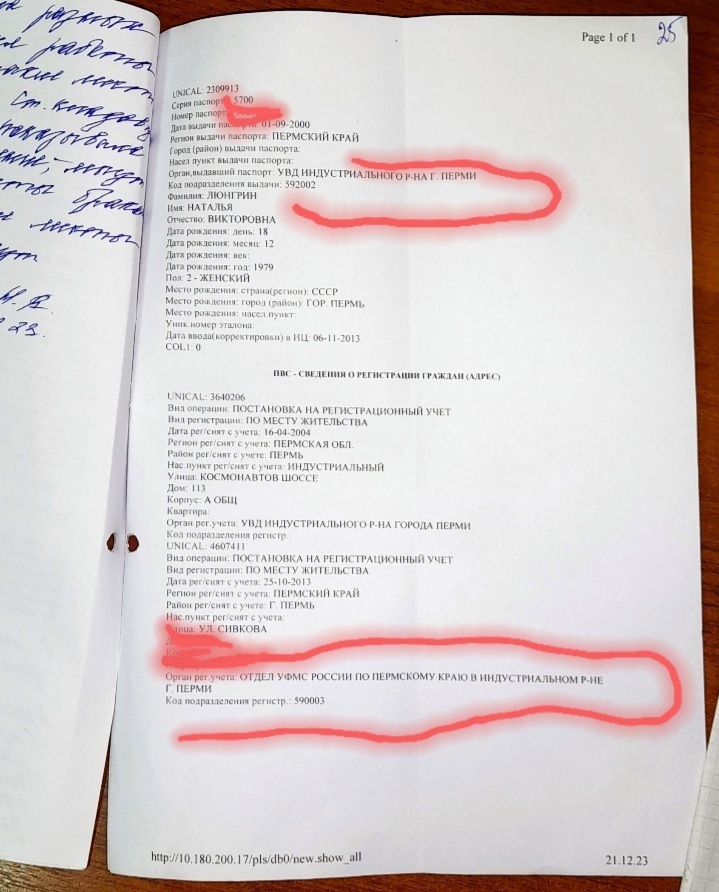 Page 1 of 1
25
разных
работы
UNICAL: 2309913
Серия паспорта: 5700
Номер паспорта
Дата выдачи паспорта: 01-09-2000
Регион выдачи паспорта: ПЕРМСКИЙ КРАЙ
Город (район) выдачи паспорта:
Насел пункт выдачи паспорта:
Орган,выдавший паспорт: УВД ИНДУСТРИАЛЬНОГО Р-НА Г. ПЕРМИ
Код подразделения выдачи: 592002
Фамилия: ЛЮНГРИН
Имя: НАТАЛЬЯ
Отчество: ВИКТОРОВНА
Дата рождения: день: 18
Дата рождения: месяц: 12
Дата рождения: век:
Дата рождения: год: 1979
Пол: 2 - ЖЕНСКИЙ
Место рождения: страна(регион): СССР
Место рождения: город (район): ГОР. ПЕРМЬ
Место рождения: насел.пункт:
Уник.номер эталона:
Дата ввода(корректировки) в ИЦ: 06-11-2013
COL1: 0
ПВС - СВЕДЕНИЯ О РЕГИСТРАЦИИ ГРАЖДАН (АДРЕС)
UNICAL: 3640206
Вид операции: ПОСТАНОВКА НА РЕГИСТРАЦИОННЫЙ УЧЕТ
Вид регистрации: ПО МЕСТУ ЖИТЕЛЬСТВА
Дата рег/снят с учета: 16-04-2004
Регион рег/снят с учета: ПЕРМСКАЯ ОБЛ.
Район рег/снят с учете: ПЕРМЬ
Нас.пункт рег/снят с учета: ИНДУСТРИАЛЬНЫЙ
Улица: КОСМОНАВТОВ ШОССЕ
Дом: 113
Корпус: А ОБЩ
Квартира:
Орган рег.учета: УВД ИНДУСТРИАЛЬНОГО Р-НА ГОРОДА ПЕРМИ
Код подразделения регистр.:
UNICAL: 4607411
Вид операции: ПОСТАНОВКА НА РЕГИСТРАЦИОННЫЙ УЧЕТ
Вид регистрации: ПО МЕСТУ ЖИТЕЛЬСТВА
Дата рег/снят с учета: 25-10-2013
Регион рег/снят с учета: ПЕРМСКИЙ КРАЙ
Район рег/снят с учете: Г. ПЕРМЬ
Нас.пункт рег/снят с учета:
Улица: УЛ. СИВКОВА
Орган рег.учета: ОТДЕЛ УФМС РОССИИ ПО ПЕРМСКОМУ КРАЮ В ИНДУСТРИАЛЬНОМ Р-НЕ
Г. ПЕРМИ
Код подразделения регистр.: 590003
http://10.180.200.17/pls/db0/new.show_all
21.12.23